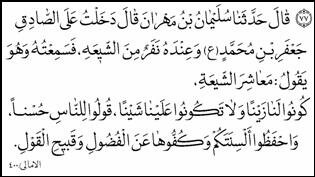 ٧٧ قَالَ حَدَّثَنَا سُلَيْمَانُ بْنُ مَهْرَانَ قَالَ دَخَلْتُ عَلَى الصَّادِقِ
جَعْفَرِ بْنِ مُحَمَّدٍ(ع) وَعِنْدَهُ نَفَرٌ مِنَ الشِّيعَةِ، فَسَمِعْتُهُ وَهُوَ
يَقُولُ: مَعَاشِرَ الشِّيعَةِ.
كُونُوا لَنَا زَيْنًا وَلَا تَكُونُوا عَلَيْنَا شَيْنًا، قُولُوا لِلنَّاسِ حُسْنًا،
وَاحْفَظُوا أَلْسِنَتَكُمْ وَكُفُّوهَا عَنِ الْفُضُولِ وَقَبِيحِ الْقَوْلِ.
الامالى/٤٠٠